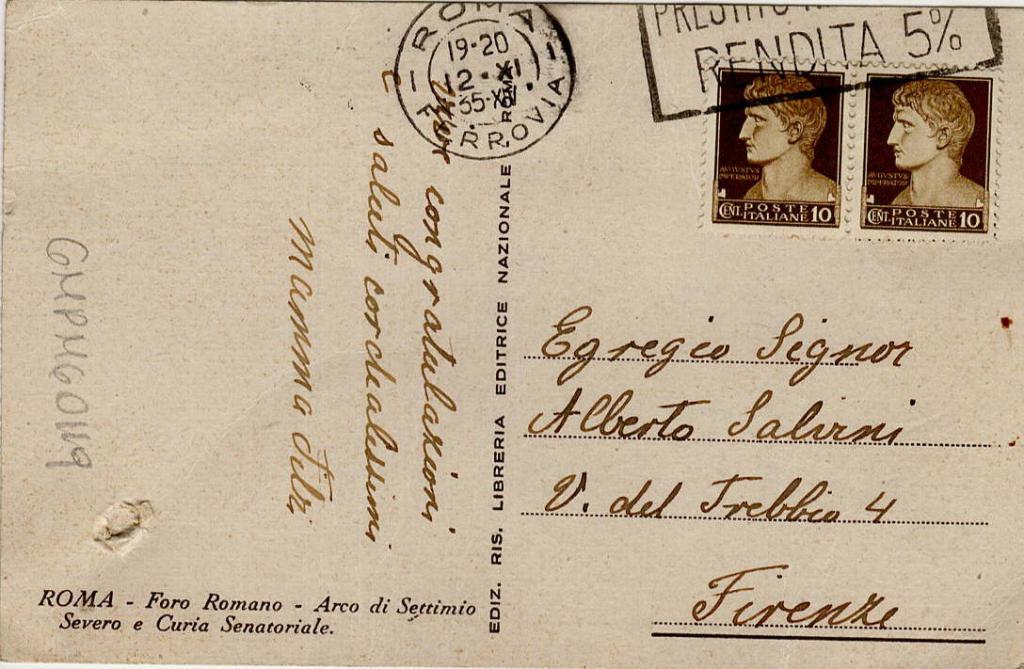 ROMA
19-20
12·XI
35-X
ROMA
FERROVIA
PRESTITO
RENDITA 5%
AVGVSTVS
IMPERATOR
CENT. POSTE ITALIANE 10
AVGVSTVS
IMPERATOR
CENT. POSTE ITALIANE 10
Vive congratulazioni e
saluti cordialissimi
Mamma
EDIZ. RIS. LIBRERIA EDITRICE NAZIONALE ROMA
Egregio Signor
Alberto Salvini
V. del Trebbio 4
Firenze
ROMA - Foro Romano - Arco di Settimio
Severo e Curia Senatoriale.